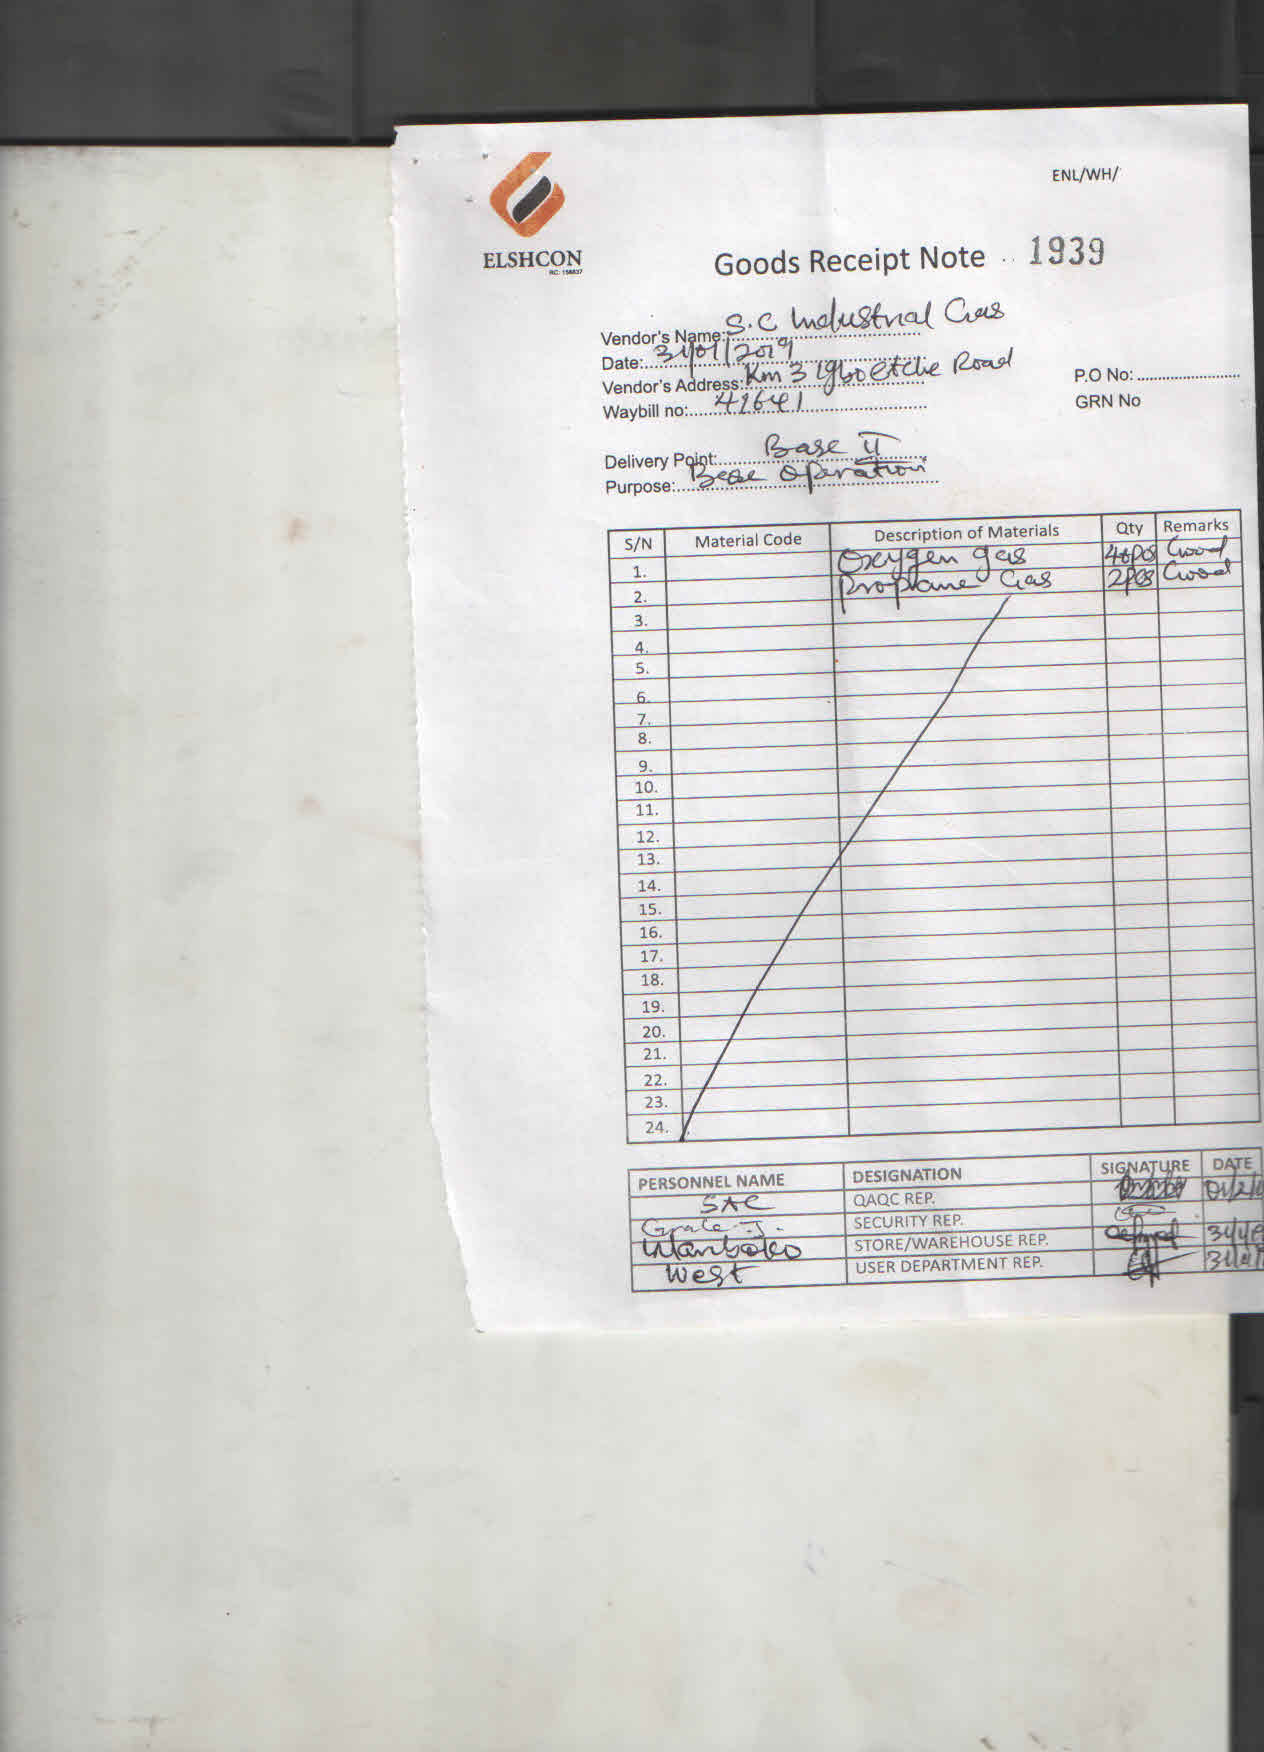 ENL/WH/
ELSHCON
RC: 156837
Goods Receipt Note 1939
Vendor's Name: S.C Industrial Gas
Date: 31/01/2019
Vendor's Address: Km 3 Igbo Etche Road
P.O No:
Waybill no: 41641
GRN No
Delivery Point: Base II
Purpose: Base Operation
S/N Material Code Description of Materials Qty Remarks
1. Oxygen gas 40pcs Good
2. Propane Gas 2pcs Good
3.
4.
5.
6.
7.
8.
9.
10.
11.
12.
13.
14.
15.
16.
17.
18.
19.
20.
21.
22.
23.
24.
PERSONNEL NAME DESIGNATION SIGNATURE DATE
SAC QAQC REP.
Grace J. SECURITY REP.
STORE/WAREHOUSE REP.
West USER DEPARTMENT REP.